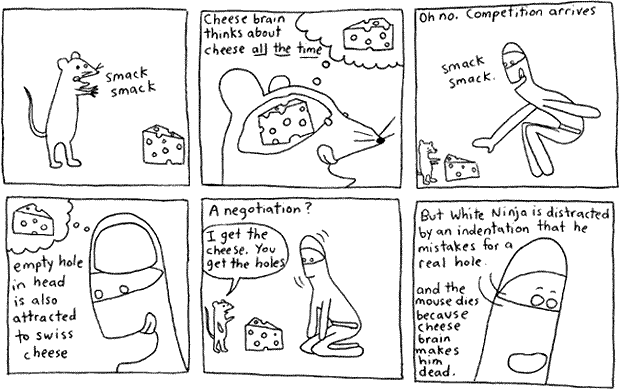 smack
smack
Cheese brain
thinks about
cheese all the time
Oh no. Competition arrives
smack
smack.
empty hole
in head
is also
attracted
to swiss
cheese
A negotiation?
I get the
cheese. You
get the holes
But White Ninja is distracted
by an indentation that he
mistakes for a
real hole.
and the
mouse dies
because
cheese
brain
makes
him
dead.